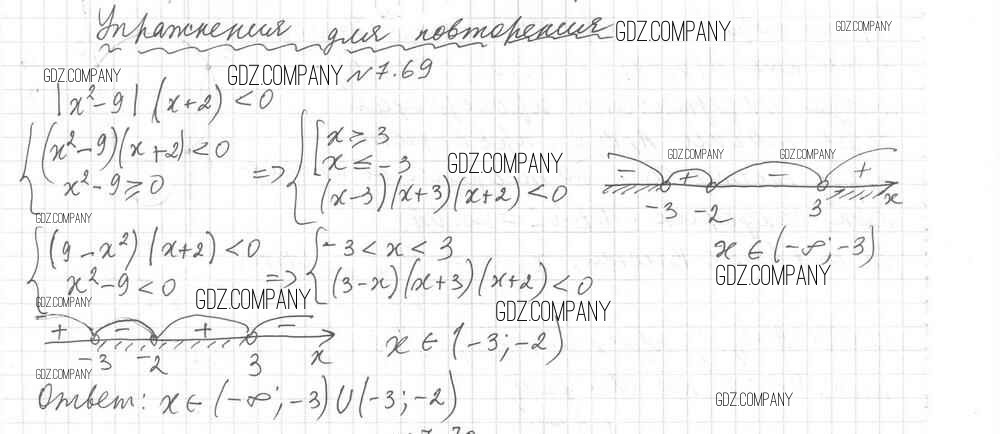 Упражнения для повторения GDZ.COMPANY GDZ.COMPANY
GDZ.COMPANY GDZ.COMPANY №7.69
|x²-9| (x+2) < 0
{ (x²-9)(x+2) < 0
x²-9 ≥ 0
=> { [ x ≥ 3
x ≤ -3 GDZ.COMPANY
(x-3)(x+3)(x+2) < 0
GDZ.COMPANY GDZ.COMPANY
- + - + x
-3 -2 3
x ∈ (-∞; -3)
GDZ.COMPANY
GDZ.COMPANY
{ (9-x²)(x+2) < 0
x²-9 < 0
=> { -3 < x < 3
(3-x)(x+3)(x+2) < 0
GDZ.COMPANY GDZ.COMPANY GDZ.COMPANY
+ - + -
-3 -2 3 x
x ∈ (-3; -2)
GDZ.COMPANY
Ответ: x ∈ (-∞; -3) ∪ (-3; -2) GDZ.COMPANY